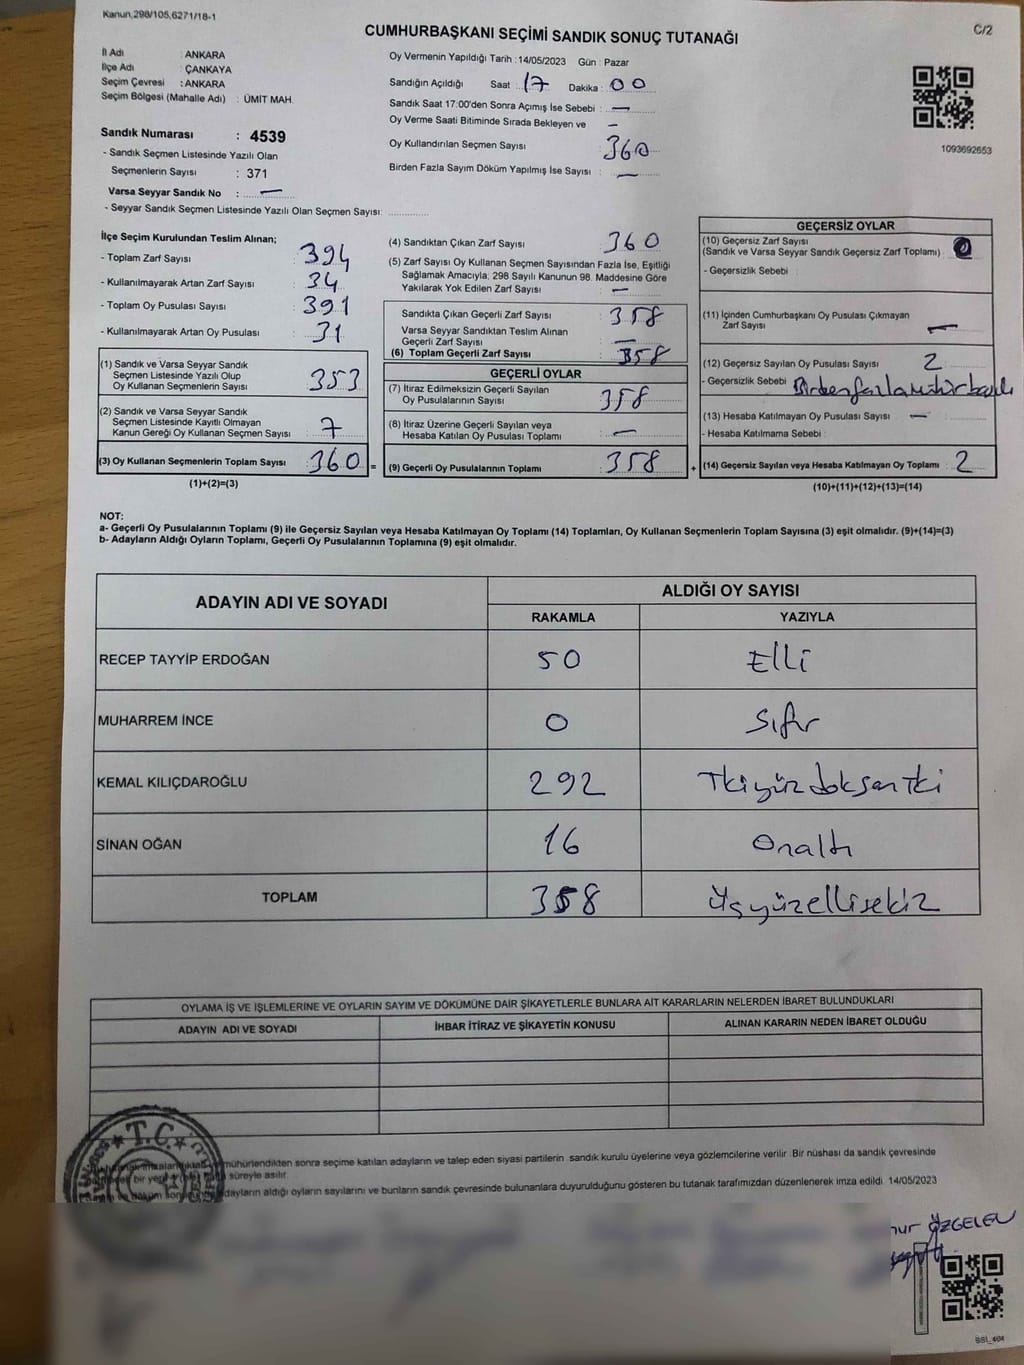 Kanun,298/105,6271/18-1
CUMHURBAŞKANI SEÇİMİ SANDIK SONUÇ TUTANAĞI
C/2
İl Adı : ANKARA
İlçe Adı : ÇANKAYA
Seçim Çevresi : ANKARA
Seçim Bölgesi (Mahalle Adı) : ÜMİT MAH.
Sandık Numarası : 4539
- Sandık Seçmen Listesinde Yazılı Olan
Seçmenlerin Sayısı : 371
Varsa Seyyar Sandık No : —
- Seyyar Sandık Seçmen Listesinde Yazılı Olan Seçmen Sayısı: ............
Oy Vermenin Yapıldığı Tarih : 14/05/2023 Gün : Pazar
Sandığın Açıldığı Saat : 17 Dakika : 00
Sandık Saat 17:00'den Sonra Açımış İse Sebebi : —
Oy Verme Saati Bitiminde Sırada Bekleyen ve —
Oy Kullandırılan Seçmen Sayısı 360
Birden Fazla Sayım Döküm Yapılmış İse Sayısı : —
1093692653
İlçe Seçim Kurulundan Teslim Alınan;
- Toplam Zarf Sayısı : 394
- Kullanılmayarak Artan Zarf Sayısı : 34
- Toplam Oy Pusulası Sayısı : 391
- Kullanılmayarak Artan Oy Pusulası : 31
(1) Sandık ve Varsa Seyyar Sandık
Seçmen Listesinde Yazılı Olup
Oy Kullanan Seçmenlerin Sayısı : 353
(2) Sandık ve Varsa Seyyar Sandık
Seçmen Listesinde Kayıtlı Olmayan
Kanun Gereği Oy Kullanan Seçmen Sayısı : 7
(3) Oy Kullanan Seçmenlerin Toplam Sayısı : 360 =
(1)+(2)=(3)
(4) Sandıktan Çıkan Zarf Sayısı : 360
(5) Zarf Sayısı Oy Kullanan Seçmen Sayısından Fazla İse, Eşitliği
Sağlamak Amacıyla; 298 Sayılı Kanunun 98. Maddesine Göre
Yakılarak Yok Edilen Zarf Sayısı : —
Sandıkta Çıkan Geçerli Zarf Sayısı : 358
Varsa Seyyar Sandıktan Teslim Alınan
Geçerli Zarf Sayısı : —
(6) Toplam Geçerli Zarf Sayısı : 358
GEÇERLİ OYLAR
(7) İtiraz Edilmeksizin Geçerli Sayılan
Oy Pusulalarının Sayısı : 358
(8) İtiraz Üzerine Geçerli Sayılan veya
Hesaba Katılan Oy Pusulası Toplamı : —
(9) Geçerli Oy Pusulalarının Toplamı : 358 +
GEÇERSİZ OYLAR
(10) Geçersiz Zarf Sayısı
(Sandık ve Varsa Seyyar Sandık Geçersiz Zarf Toplamı) : 0
- Geçersizlik Sebebi :
(11) İçinden Cumhurbaşkanı Oy Pusulası Çıkmayan
Zarf Sayısı : —
(12) Geçersiz Sayılan Oy Pusulası Sayısı : 2
- Geçersizlik Sebebi : Birden fazla mühür
(13) Hesaba Katılmayan Oy Pusulası Sayısı : —
- Hesaba Katılmama Sebebi :
(14) Geçersiz Sayılan veya Hesaba Katılmayan Oy Toplamı : 2
(10)+(11)+(12)+(13)=(14)
NOT:
a- Geçerli Oy Pusulalarının Toplamı (9) ile Geçersiz Sayılan veya Hesaba Katılmayan Oy Toplamı (14) Toplamları, Oy Kullanan Seçmenlerin Toplam Sayısına (3) eşit olmalıdır. (9)+(14)=(3)
b- Adayların Aldığı Oyların Toplamı, Geçerli Oy Pusulalarının Toplamına (9) eşit olmalıdır.
ADAYIN ADI VE SOYADI
ALDIĞI OY SAYISI
RAKAMLA YAZIYLA
RECEP TAYYİP ERDOĞAN 50 Elli
MUHARREM İNCE 0 Sıfır
KEMAL KILIÇDAROĞLU 292 İkiyüzdoksaniki
SİNAN OĞAN 16 Onaltı
TOPLAM 358 Üçyüzellisekiz
OYLAMA İŞ VE İŞLEMLERİNE VE OYLARIN SAYIM VE DÖKÜMÜNE DAİR ŞİKAYETLERLE BUNLARA AİT KARARLARIN NELERDEN İBARET BULUNDUKLARI
ADAYIN ADI VE SOYADI İHBAR İTİRAZ VE ŞİKAYETİN KONUSU ALINAN KARARIN NEDEN İBARET OLDUĞU
T.C.
mühürlendikten sonra seçime katılan adayların ve talep eden siyasi partilerin sandık kurulu üyelerine veya gözlemcilerine verilir. Bir nüshası da sandık çevresinde
süreyle asılır.
adayların aldığı oyların sayılarını ve bunların sandık çevresinde bulunanlara duyurulduğunu gösteren bu tutanak tarafımızdan düzenlenerek imza edildi. 14/05/2023
ÖZGELEN